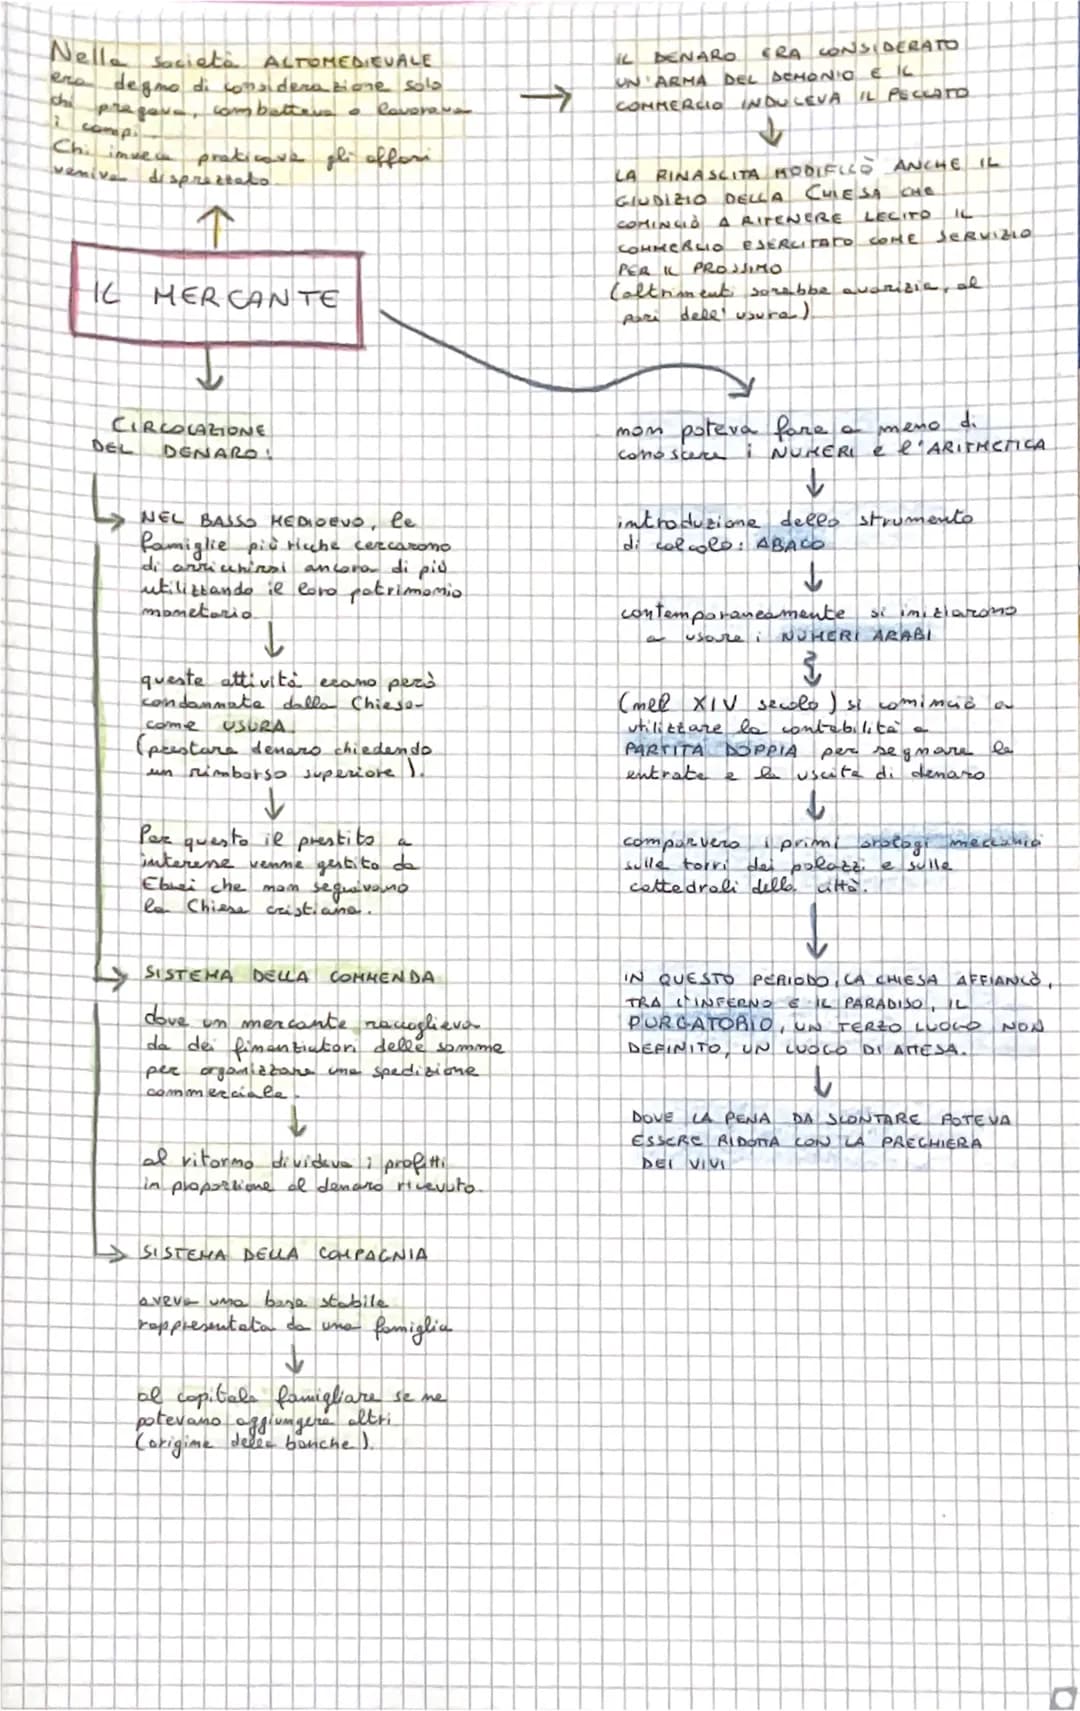 Nella società ALTOMEDIEVALE
era degno di considerazione solo
chi pregava, combatteva o lavorava
i campi.
Chi invece praticava gli affari
veniva disprezzato.
IL DENARO ERA CONSIDERATO
UN'ARMA DEL DEMONIO E IL
COMMERCIO INDUCEVA IL PECCATO
LA RINASCITA MODIFICÒ ANCHE IL
GIUDIZIO DELLA CHIESA CHE
COMINCIÒ A RITENERE LECITO IL
COMMERCIO ESERCITATO COME SERVIZIO
PER IL PROSSIMO
(altrimenti sarebbe avarizia, al
pari dell'usura).
IL MERCANTE
CIRCOLAZIONE
DEL DENARO:
NEL BASSO MEDIOEVO, le
famiglie più ricche cercarono
di arricchirsi ancora di più
utilizzando il loro patrimonio
monetario.
queste attività erano però
condannate dalla Chiesa
come USURA
(prestare denaro chiedendo
un rimborso superiore).
Per questo il prestito a
interesse venne gestito da
Ebrei che non seguivano
la Chiesa cristiana.
SISTEMA DELLA COMMENDA
dove un mercante raccoglieva
da dei finanziatori delle somme
per organizzare una spedizione
commerciale.
al ritorno divideva i profitti
in proporzione al denaro ricevuto.
SISTEMA DELLA COMPAGNIA
aveva una base stabile
rappresentata da una famiglia
al capitale famigliare se ne
potevano aggiungere altri
(origine delle banche).
non poteva fare a meno di
conoscere i NUMERI e l'ARITMETICA
introduzione dello strumento
di calcolo: ABACO
contemporaneamente si iniziarono
a usare i NUMERI ARABI
(nel XIV secolo) si cominciò a
utilizzare la contabilità a
PARTITA DOPPIA per segnare le
entrate e le uscite di denaro
comparvero i primi orologi meccanici
sulle torri dei palazzi e sulle
cattedrali della città.
IN QUESTO PERIODO, LA CHIESA AFFIANCÒ,
TRA L'INFERNO E IL PARADISO, IL
PURGATORIO, UN TERZO LUOGO NON
DEFINITO, UN LUOGO DI ATTESA.
DOVE LA PENA DA SCONTARE POTEVA
ESSERE RIDOTTA CON LA PREGHIERA
DEI VIVI